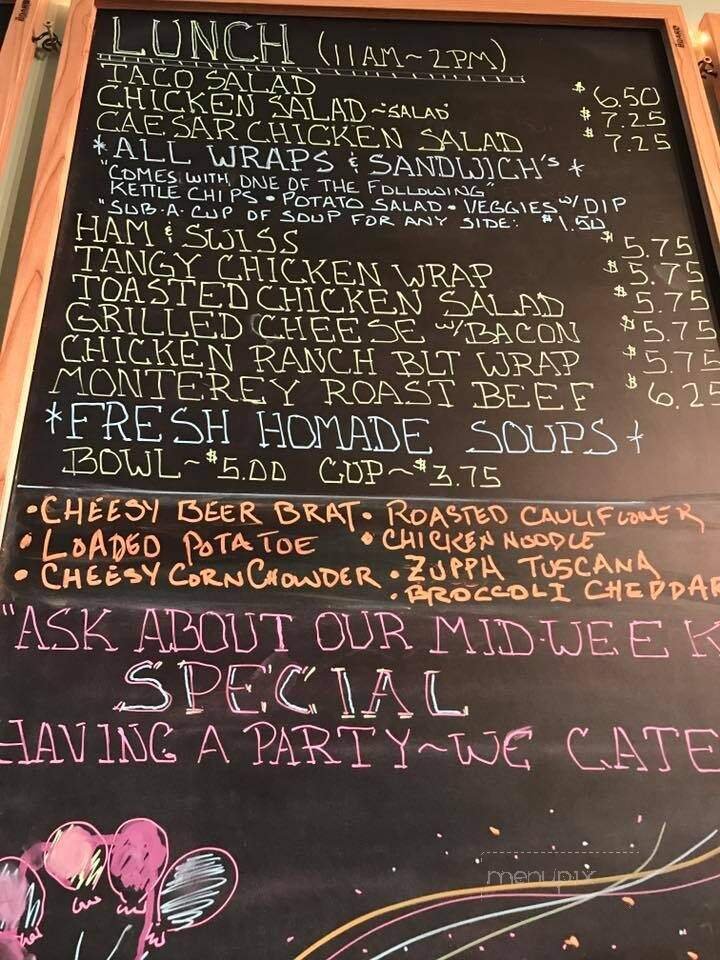 LUNCH (11AM~2PM)
TACO SALAD $6.50
CHICKEN SALAD ~SALAD $7.25
CAESAR CHICKEN SALAD $7.25
*ALL WRAPS & SANDWICH's *
"COMES WITH ONE OF THE FOLLOWING"
KETTLE CHIPS • POTATO SALAD • VEGGIES w/ DIP
"SUB.A. CUP OF SOUP FOR ANY SIDE: $1.50
HAM & SWISS $5.75
TANGY CHICKEN WRAP $5.75
TOASTED CHICKEN SALAD $5.75
GRILLED CHEESE w/BACON $5.75
CHICKEN RANCH BLT WRAP $5.75
MONTEREY ROAST BEEF $6.25
*FRESH HOMADE SOUPS*
BOWL~$5.00 CUP~$3.75
• CHEESY BEER BRAT • ROASTED CAULIFLOWER
• LOADED POTATOE • CHICKEN NOODLE
• CHEESY CORN CHOWDER • ZUPPA TUSCANA
• BROCCOLI CHEDDAR
"ASK ABOUT OUR MID-WEEK
SPECIAL
HAVING A PARTY~WE CATE
menupix